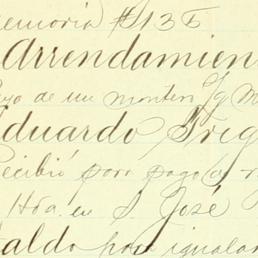 emoria $136
Arrendamien
de un monten
Eduardo Treg
Recibió por pago de
Hda. en S. José
Saldo para igualar